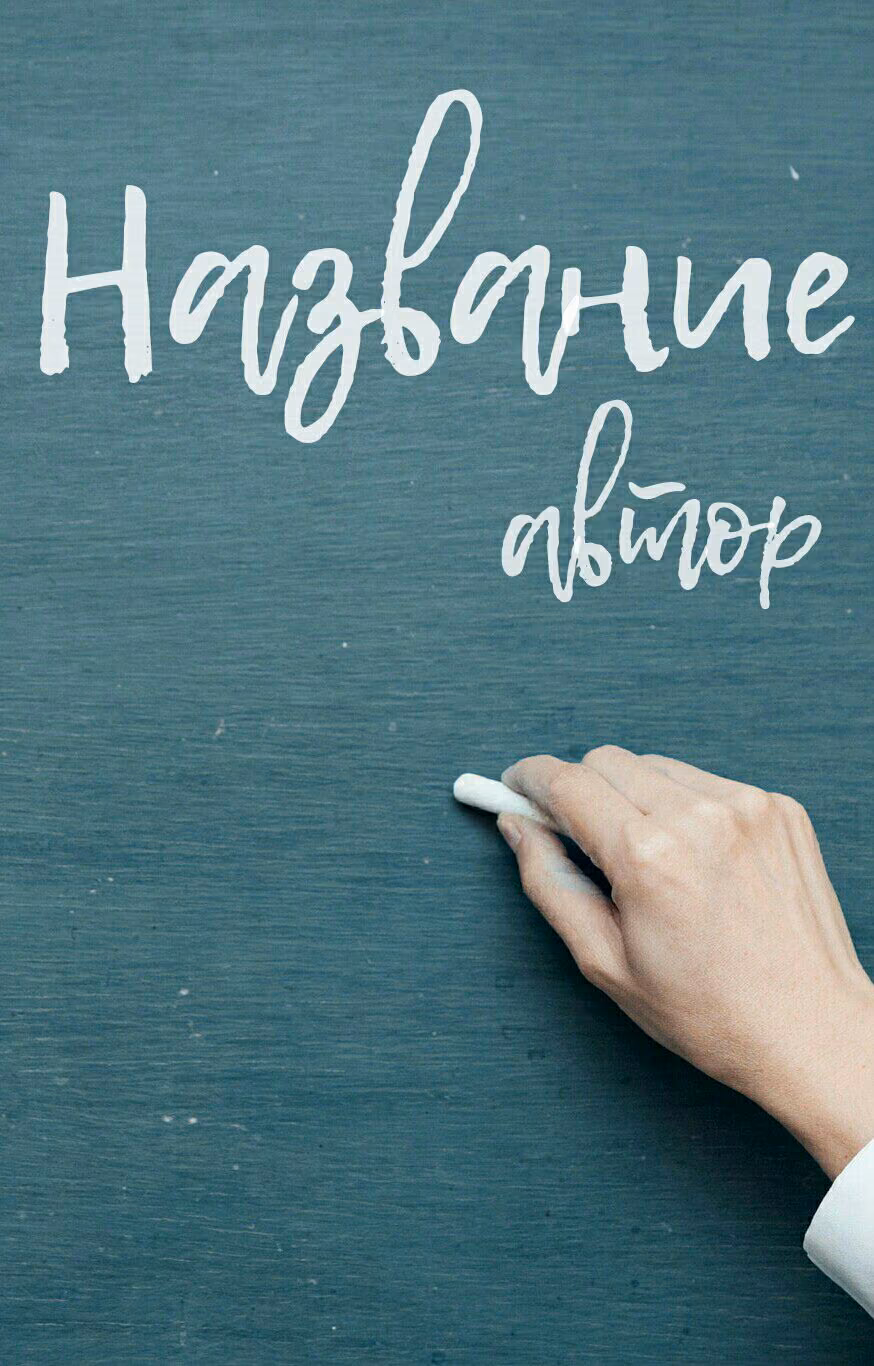 Название
автор